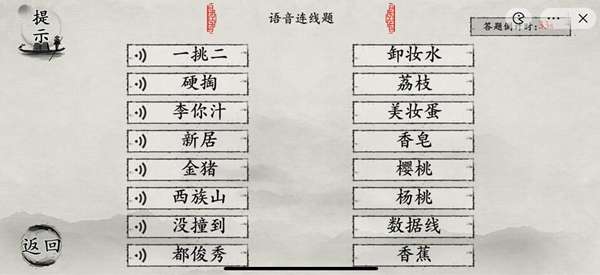 提示
语音连线题
答题倒计时:
一挑二 卸妆水
硬掏 荔枝
李你汁 美妆蛋
新居 香皂
金猪 樱桃
西族山 杨桃
没撞到 数据线
都俊秀 香蕉
返回